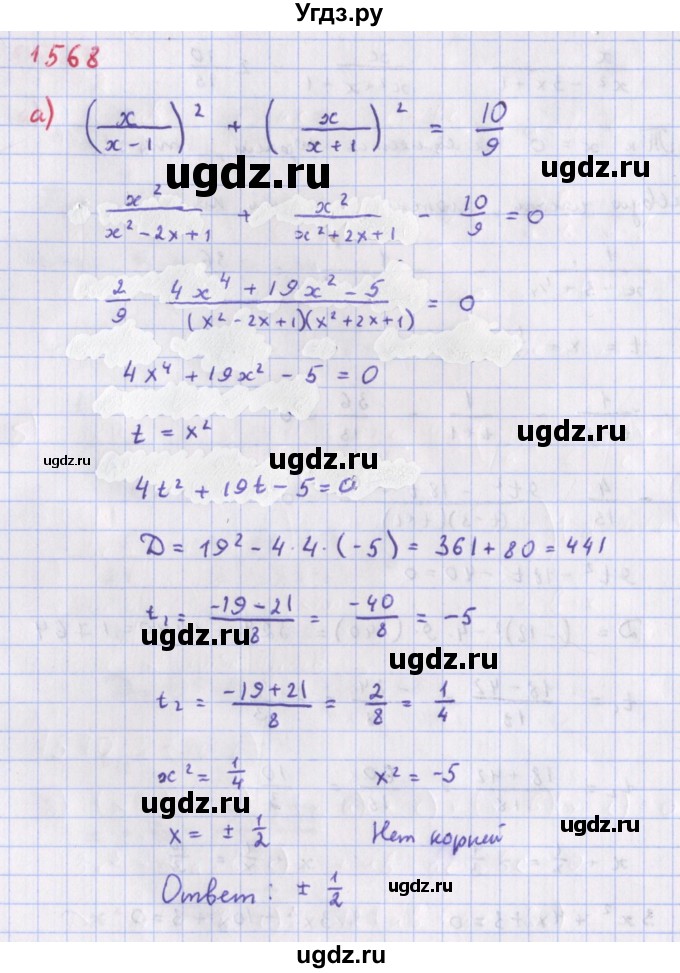 Угдз.ру
1568
а) (x/(x-1))² + (x/(x+1))² = 10/9
ugdz.ru
ugdz.ru
x²/(x²-2x+1) + x²/(x²+2x+1) - 10/9 = 0
ugdz.ru
ugdz.ru
2/9 (4x⁴+19x²-5)/((x²-2x+1)(x²+2x+1)) = 0
4x⁴+19x²-5=0
ugdz.ru
ugdz.ru
t = x²
ugdz.ru
ugdz.ru
4t²+19t-5=0
D = 19²-4·4·(-5) = 361+80 = 441
t₁ = (-19-21)/8 = -40/8 = -5
ugdz.ru
ugdz.ru
t₂ = (-19+21)/8 = 2/8 = 1/4
ugdz.ru
x² = 1/4 x² = -5
ugdz.ru
ugdz.ru
x = ± 1/2 Нет корней
Ответ: ± 1/2
ugdz.ru
ugdz.ru
ugdz.ru